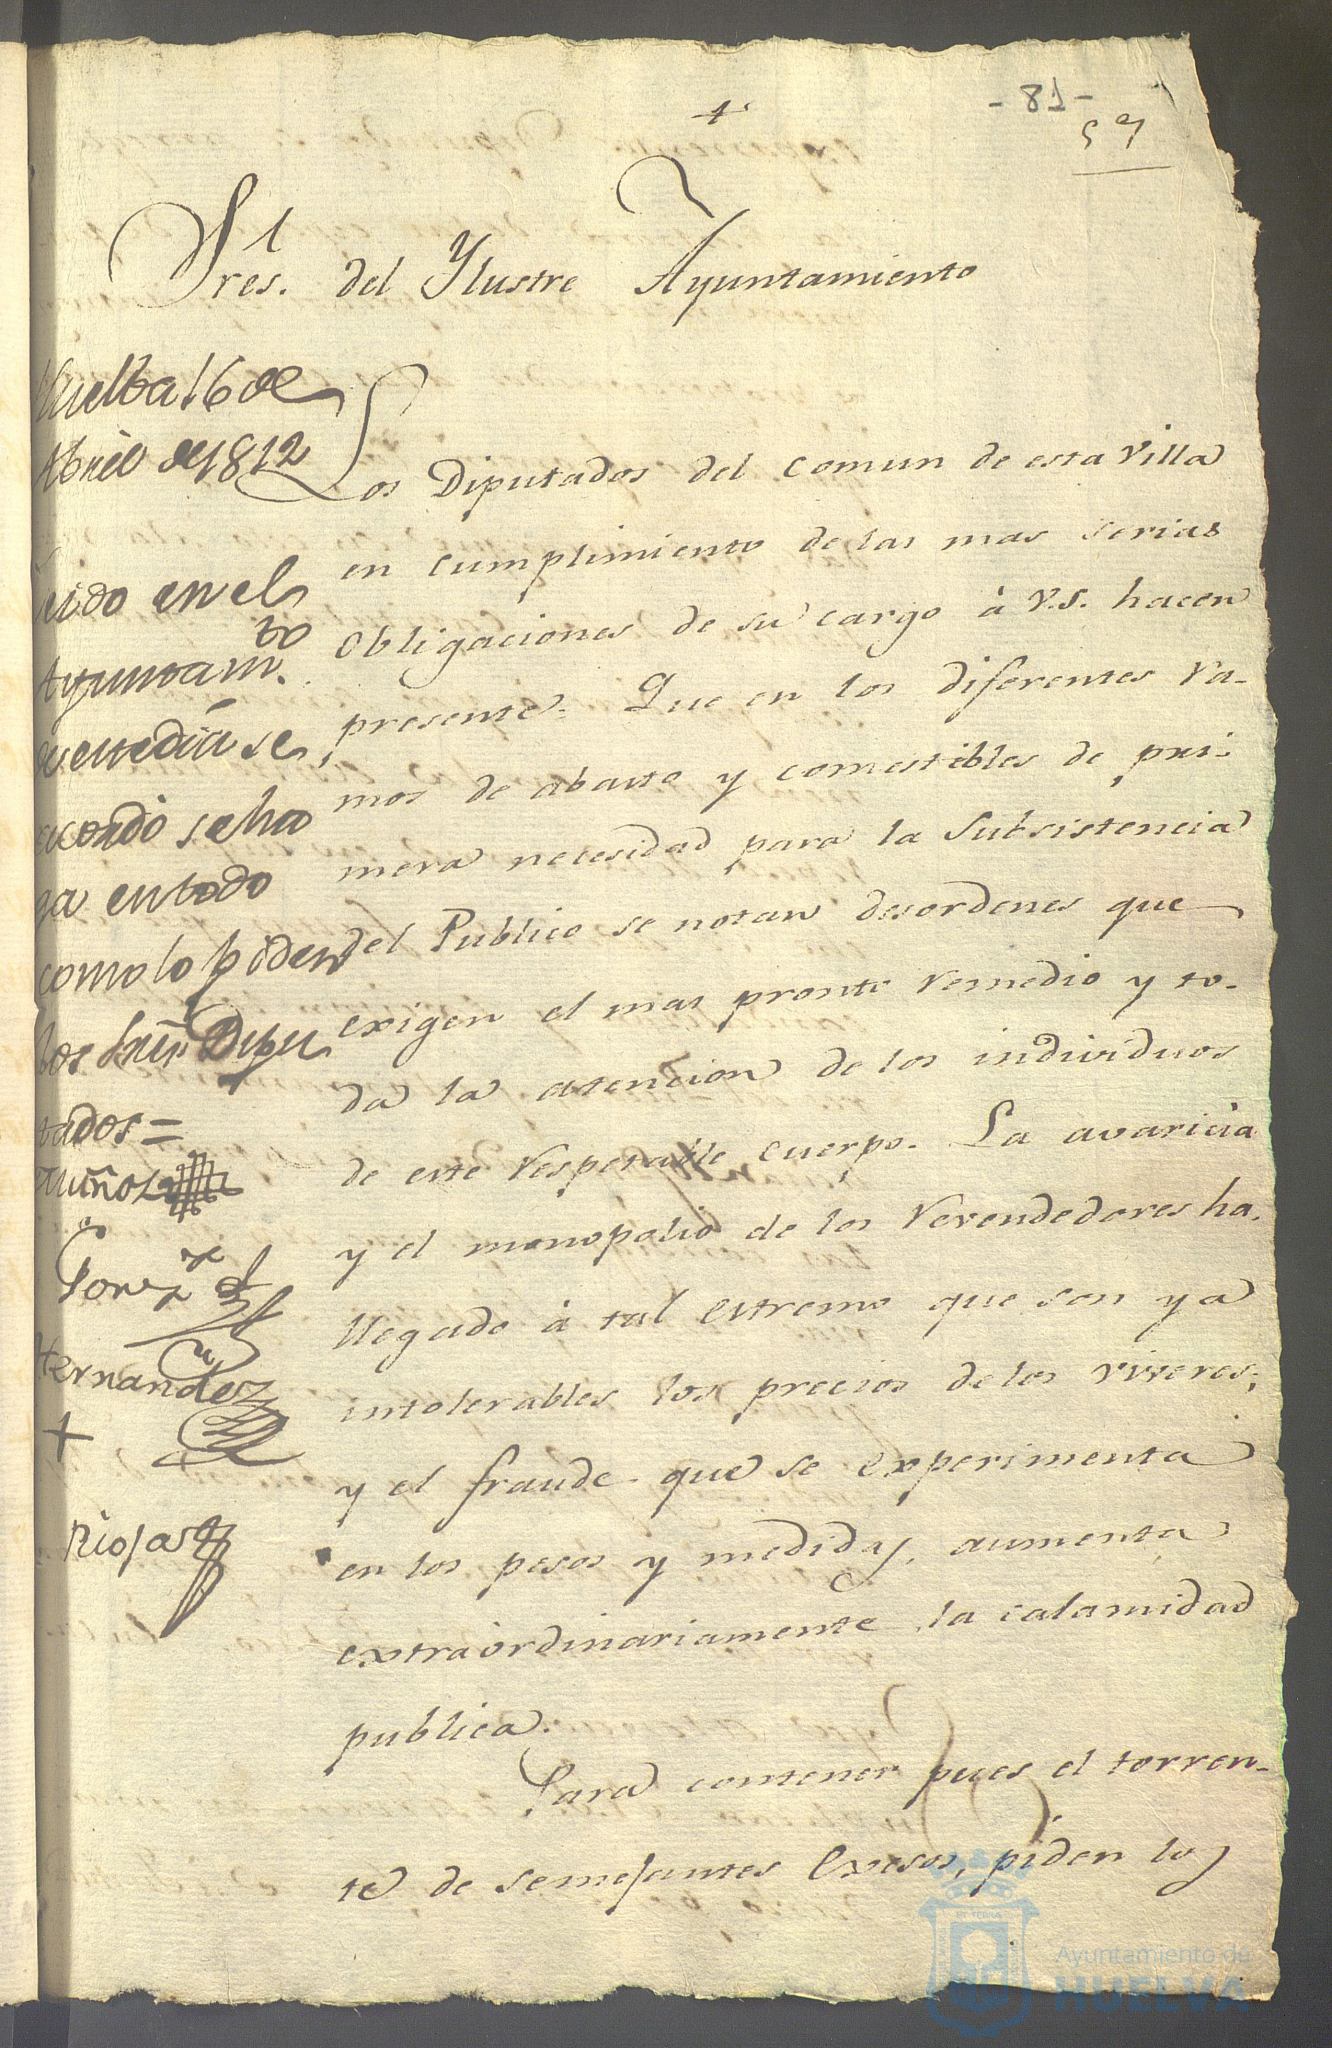 - 81 -
57
+
Sres. del Ylustre Ayuntamiento
Huelba 16 de
Abril de 1812
Leido en el
Ayuntam.to
de este dia se
acordò se ha
ga en todo
como lo piden
los Sres Dipu
tados =
Muñoz
Hernandez
+
Riojas
Los Diputados del comun de esta Villa
en cumplimiento de las mas serias
Obligaciones de su cargo à V.S. hacen
presente: Que en los diferentes Ra-
mos de abasto y comestibles de pri-
mera necesidad para la Subsistencia
del Publico se notan desordenes que
exigen el mas pronto remedio y to-
da la atencion de los individuos
de este respetable cuerpo. La avaricia
y el monopolio de los Revendedores ha
llegado à tal extremo que son ya
intolerables los precios de los viveres;
y el fraude que se experimenta
en los pesos y medidas, aumenta
extraordinariamente la calamidad
publica.
Para contener pues el torren-
te de semejantes excesos, piden los
Ayuntamiento de
HUELVA